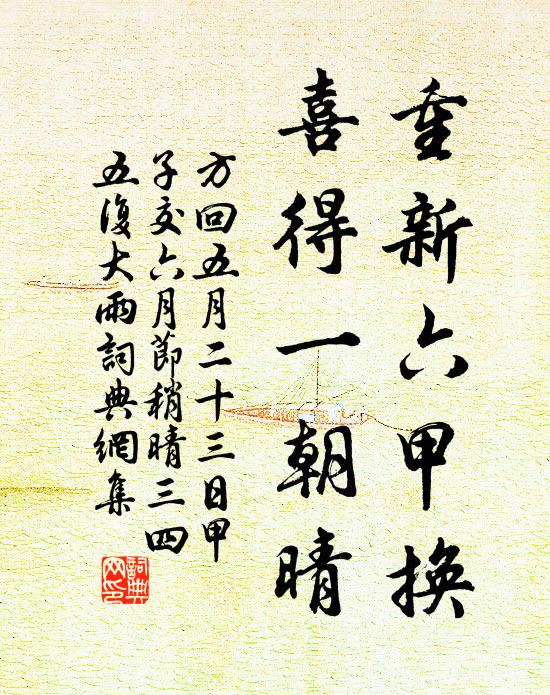 重新六甲換
喜得一朝晴
方回五月二十三日甲
子交六月節稍晴三四
五復大雨詞典網集
詞典
网印